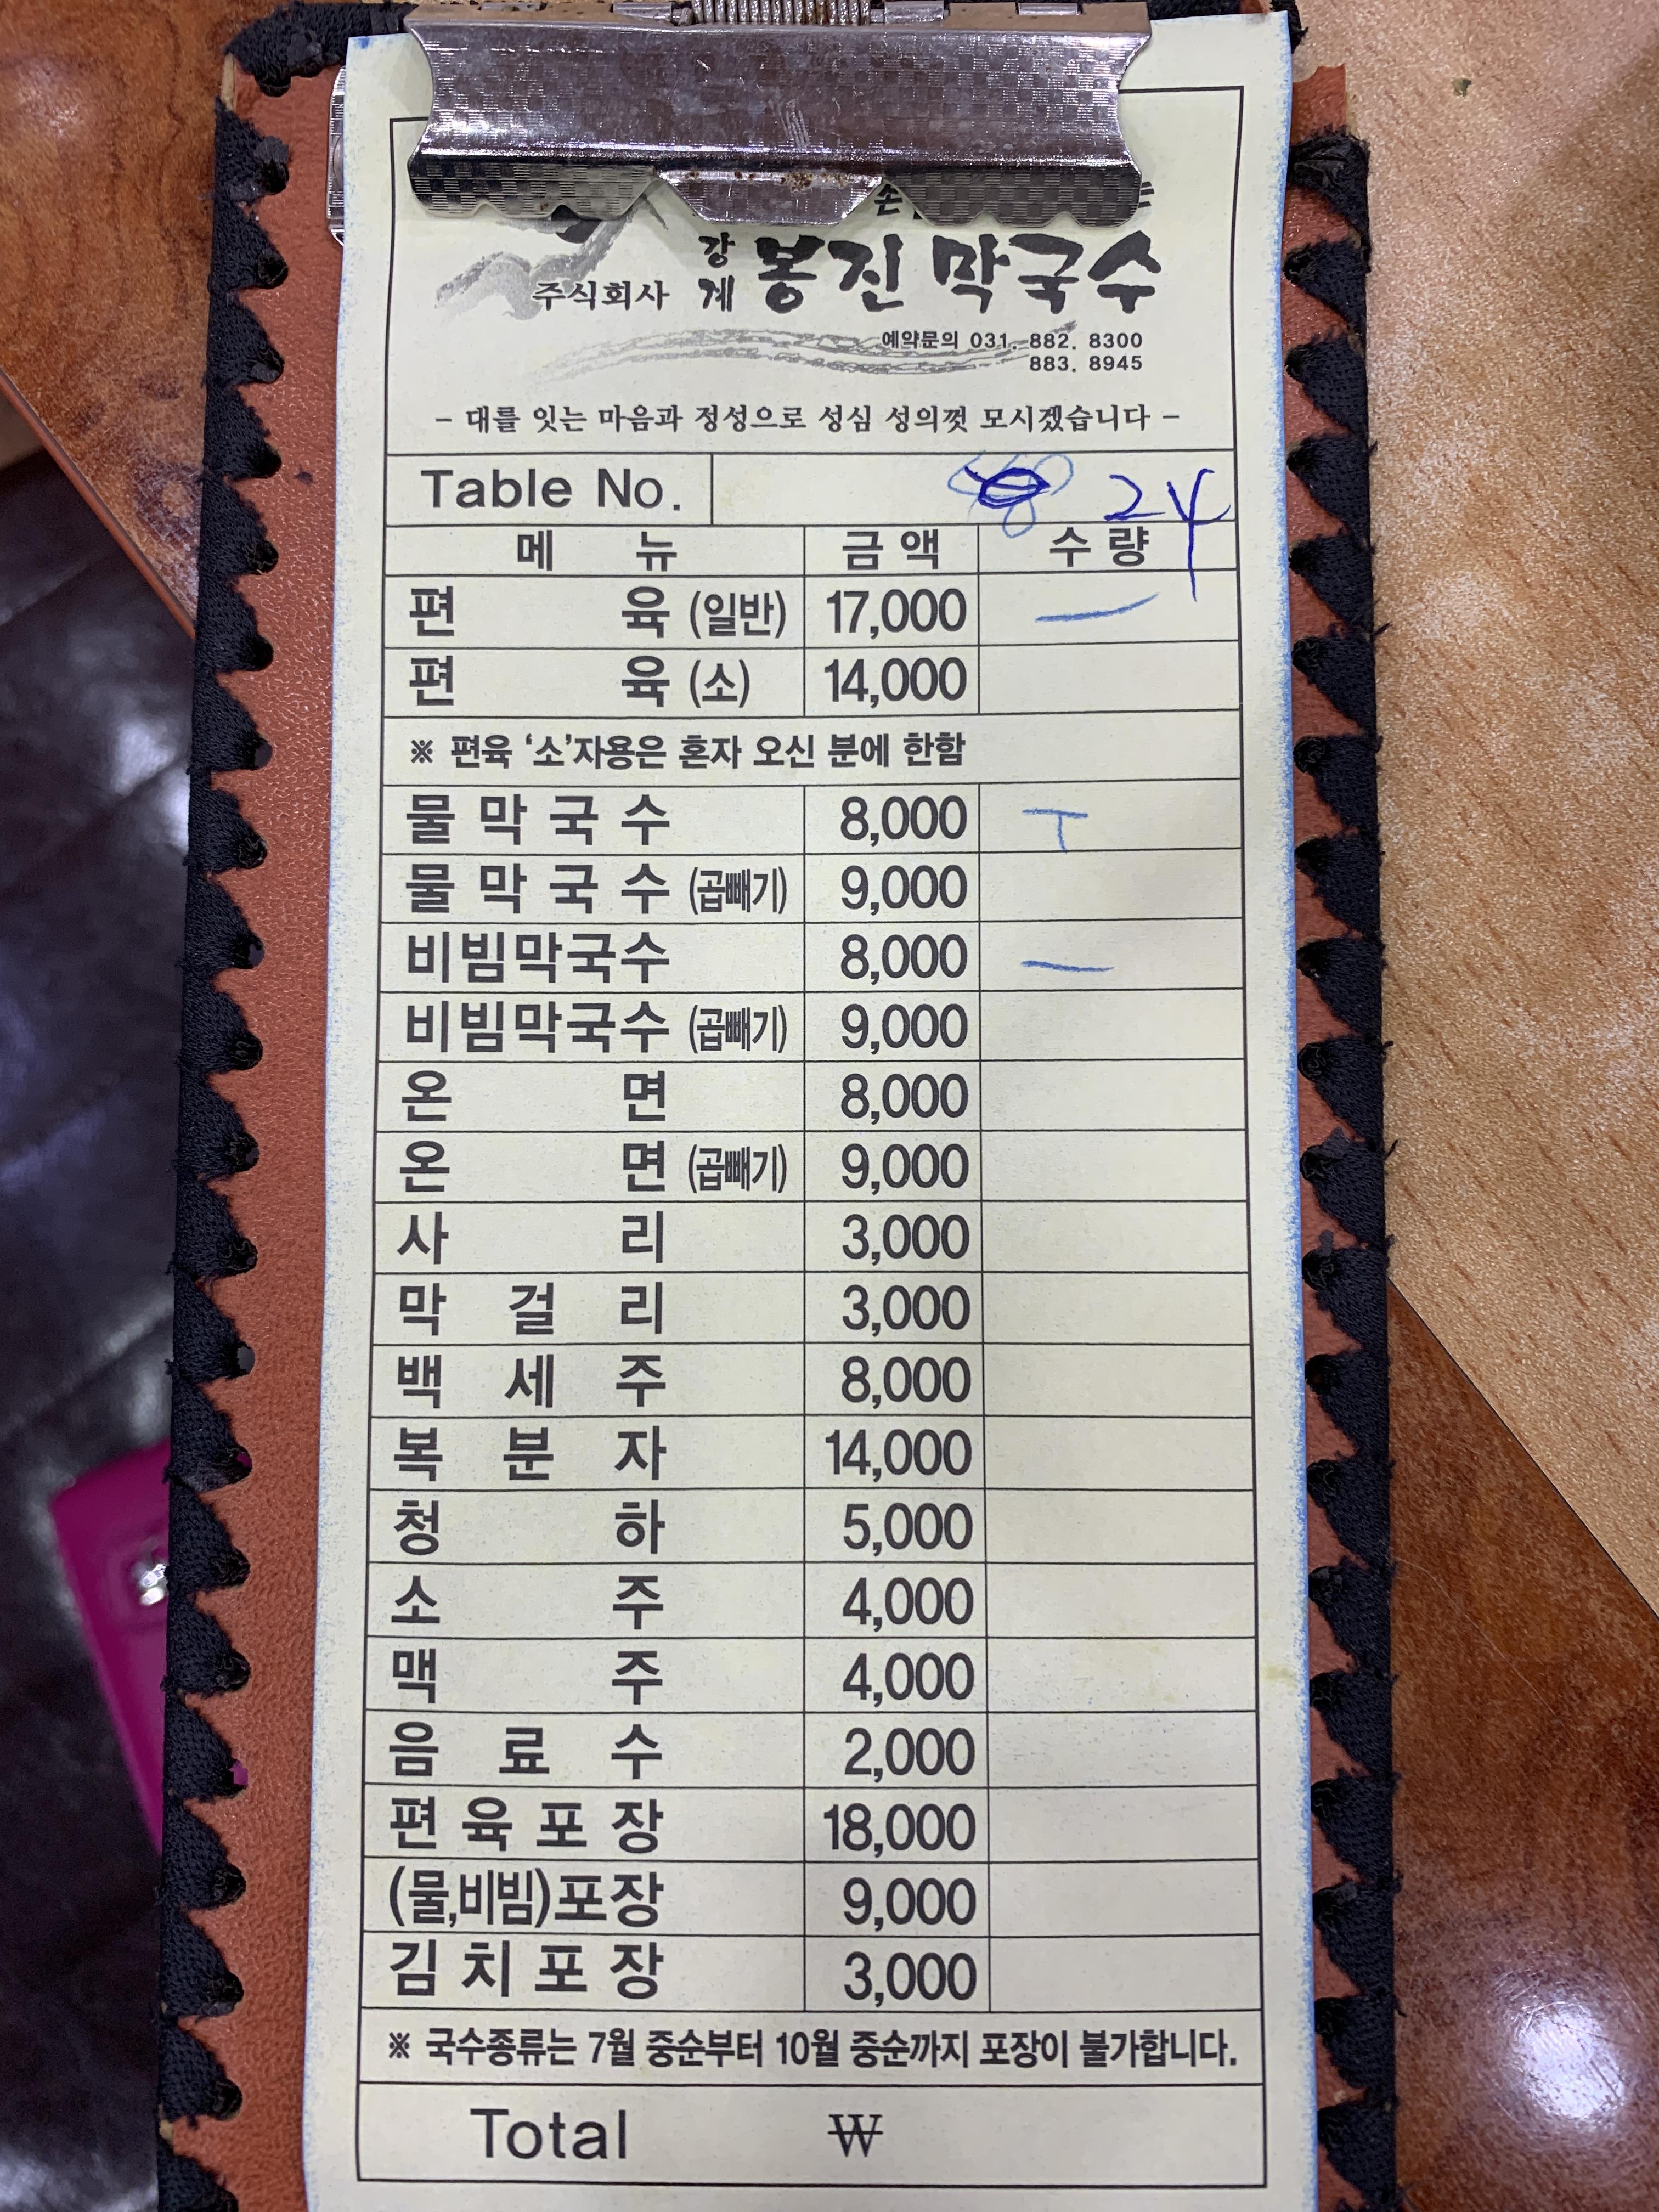 강계 봉진막국수
주식회사
예약문의 031. 882. 8300
883. 8945
- 대를 잇는 마음과 정성으로 성심 성의껏 모시겠습니다 -
Table No. 24
메 뉴 금 액 수 량
편 육 (일반) 17,000 一
편 육 (소) 14,000
※ 편육 '소'자용은 혼자 오신 분에 한함
물 막 국 수 8,000 T
물 막 국 수 (곱빼기) 9,000
비빔막국수 8,000 一
비빔막국수 (곱빼기) 9,000
온 면 8,000
온 면 (곱빼기) 9,000
사 리 3,000
막 걸 리 3,000
백 세 주 8,000
복 분 자 14,000
청 하 5,000
소 주 4,000
맥 주 4,000
음 료 수 2,000
편 육 포 장 18,000
(물,비빔)포장 9,000
김 치 포 장 3,000
※ 국수종류는 7월 중순부터 10월 중순까지 포장이 불가합니다.
Total ₩